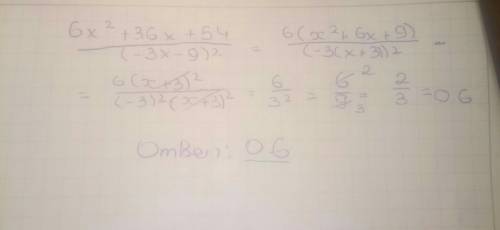 6x² + 36x + 54 / (-3x - 9)² = 6(x² + 6x + 9) / (-3(x + 3))² =
= 6(x + 3)² / (-3)²(x + 3)² = 6 / 3² = 6 2 / 9 3 = 2 / 3 = 0 6
Ответ: 0 6